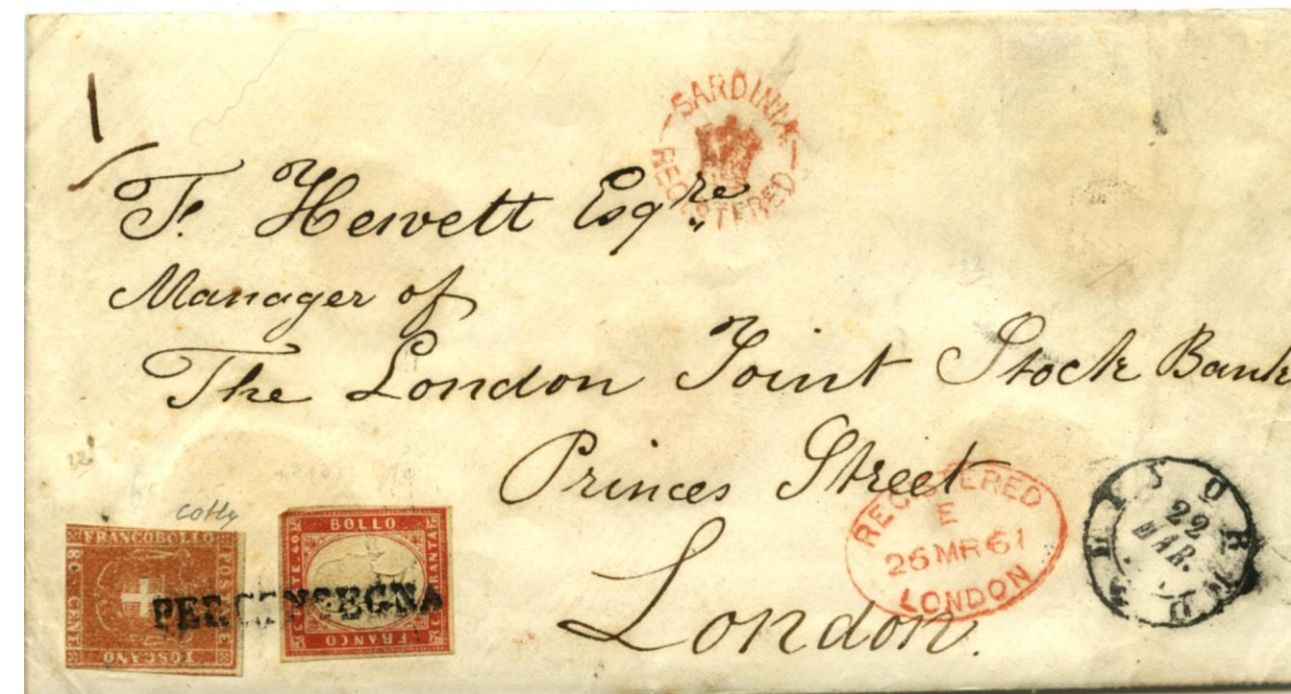 1/
SARDINIA
REGISTERED
F. Hewett Esqre
Manager of
The London Joint Stock Bank
Princes Street
London.
REGISTERED
E
26 MR 61
LONDON
22
MAR.
cotty
FRANCOBOLLO
POSTALE
80 CENT
TOSCANO
BOLLO
C. QUARANTA
FRANCO
CENTE. 40
PER CONSEGNA